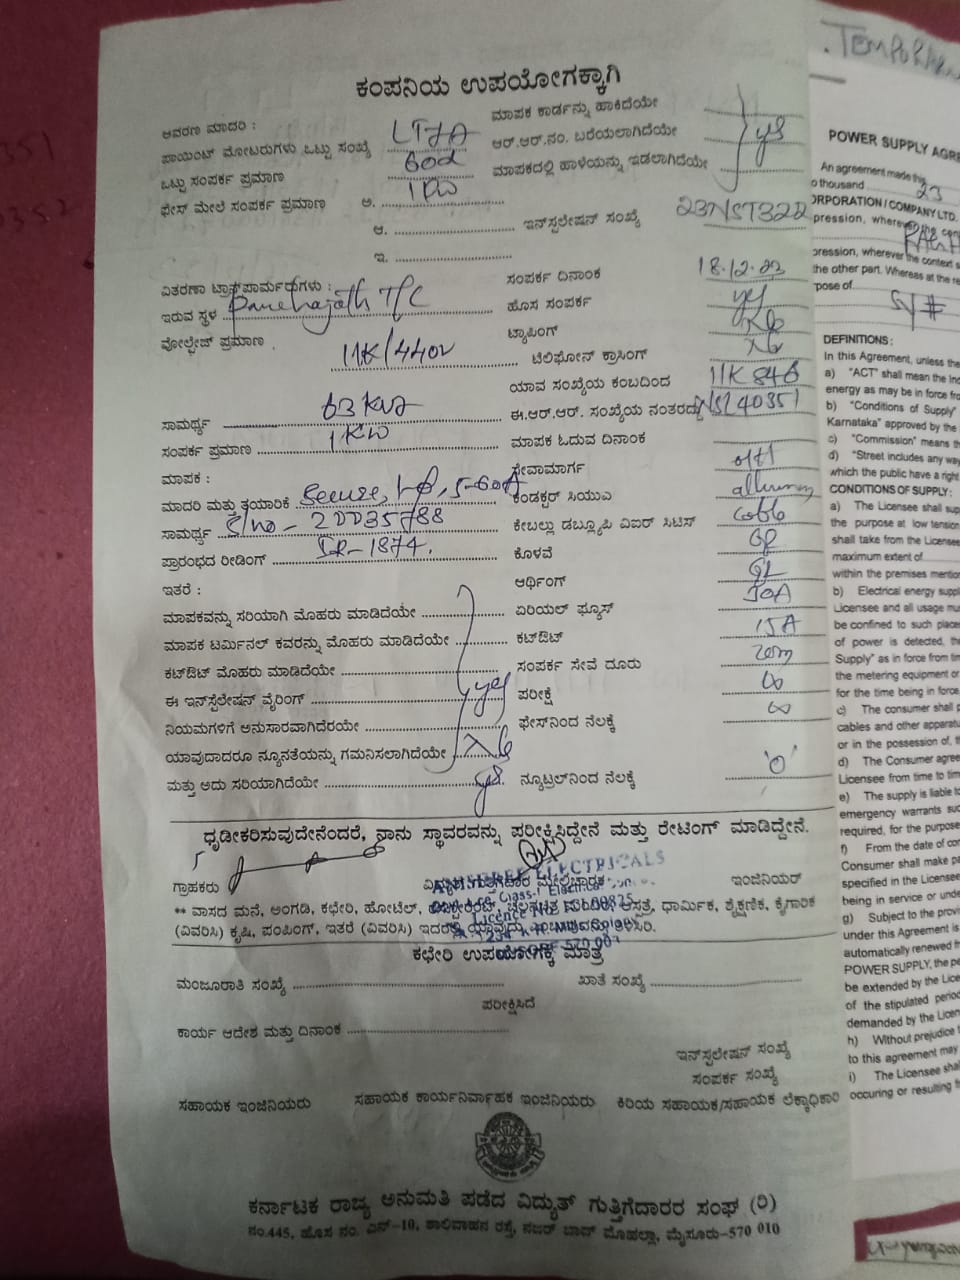 ಕಂಪನಿಯ ಉಪಯೋಗಕ್ಕಾಗಿ
ಆವರಣ ಮಾದರಿ :
ಪಾಯಿಂಟ್ ಮೋಟರುಗಳು ಒಟ್ಟು ಸಂಖ್ಯೆ LT7A
ಒಟ್ಟು ಸಂಪರ್ಕ ಪ್ರಮಾಣ
ಫೇಸ್ ಮೇಲೆ ಸಂಪರ್ಕ ಪ್ರಮಾಣ ಅ.
ಆ.
ಇ.
ಮಾಪಕ ಕಾರ್ಡನ್ನು ಹಾಕಿದೆಯೇ
ಆರ್.ಆರ್.ನಂ. ಬರೆಯಲಾಗಿದೆಯೇ yes
ಮಾಪಕದಲ್ಲಿ ಹಾಳೆಯನ್ನು ಇಡಲಾಗಿದೆಯೇ
ಇನ್‌ಸ್ಟಲೇಷನ್ ಸಂಖ್ಯೆ 23NST322
ವಿತರಣಾ ಟ್ರಾನ್ಸ್‌ಫಾರ್ಮರುಗಳು :
ಇರುವ ಸ್ಥಳ T/C
ವೋಲ್ಟೇಜ್ ಪ್ರಮಾಣ 11K/440v
ಸಾಮರ್ಥ್ಯ 63 KVA
ಸಂಪರ್ಕ ಪ್ರಮಾಣ 1 KW
ಸಂಪರ್ಕ ದಿನಾಂಕ 18.12.22
ಹೊಸ ಸಂಪರ್ಕ yes
ಟ್ಯಾಪಿಂಗ್ No
ಟೆಲಿಫೋನ್ ಕ್ರಾಸಿಂಗ್ No
ಯಾವ ಸಂಖ್ಯೆಯ ಕಂಬದಿಂದ 11K 846
ಈ.ಆರ್.ಆರ್. ಸಂಖ್ಯೆಯ ನಂತರದ್ದು
ಮಾಪಕ ಓದುವ ದಿನಾಂಕ
ಮಾಪಕ :
ಮಾದರಿ ಮತ್ತು ತಯಾರಿಕೆ Secure, 1-Φ, 5-60A
ಸಾಮರ್ಥ್ಯ S/no - 2DD35788
ಪ್ರಾರಂಭದ ರೀಡಿಂಗ್ IR-1874.
ಸೇವಾಮಾರ್ಗ
ಕಂಡಕ್ಟರ್ ಸಿಯುಎ
ಕೇಬಲ್ಲು ಡಬ್ಲ್ಯೂಪಿ ವಿಐಆರ್ ಸಿಟಿಸ್
ಕೊಳವೆ
ಇತರೆ :
ಮಾಪಕವನ್ನು ಸರಿಯಾಗಿ ಮೊಹರು ಮಾಡಿದೆಯೇ
ಮಾಪಕ ಟರ್ಮಿನಲ್ ಕವರನ್ನು ಮೊಹರು ಮಾಡಿದೆಯೇ
ಕಟ್‌ಔಟ್ ಮೊಹರು ಮಾಡಿದೆಯೇ
ಈ ಇನ್‌ಸ್ಟಲೇಷನ್ ವೈರಿಂಗ್ yes
ನಿಯಮಗಳಿಗೆ ಅನುಸಾರವಾಗಿದೆಯೇ
ಯಾವುದಾದರೂ ನ್ಯೂನತೆಯನ್ನು ಗಮನಿಸಲಾಗಿದೆಯೇ No
ಮತ್ತು ಅದು ಸರಿಯಾಗಿದೆಯೇ yes.
ಆರ್ಥಿಂಗ್
ಏರಿಯಲ್ ಫ್ಯೂಸ್
ಕಟ್‌ಔಟ್ 15A
ಸಂಪರ್ಕ ಸೇವೆ ದೂರು
ಪರೀಕ್ಷೆ ∞
ಫೇಸ್‌ನಿಂದ ನೆಲಕ್ಕೆ ∞
ನ್ಯೂಟ್ರಲ್‌ನಿಂದ ನೆಲಕ್ಕೆ 'O'
ಧೃಡೀಕರಿಸುವುದೇನೆಂದರೆ, ನಾನು ಸ್ಥಾವರವನ್ನು ಪರೀಕ್ಷಿಸಿದ್ದೇನೆ ಮತ್ತು ರೇಟಿಂಗ್ ಮಾಡಿದ್ದೇನೆ.
ಗ್ರಾಹಕರು
ELECTRICALS
ಇಂಜಿನಿಯರ್
** ವಾಸದ ಮನೆ, ಅಂಗಡಿ, ಕಛೇರಿ, ಹೋಟೆಲ್, ಧಾರ್ಮಿಕ, ಶೈಕ್ಷಣಿಕ, ಕೈಗಾರಿಕೆ
(ವಿವರಿಸಿ) ಕೃಷಿ, ಪಂಪಿಂಗ್, ಇತರೆ (ವಿವರಿಸಿ)
ಕಛೇರಿ ಉಪಯೋಗಕ್ಕೆ ಮಾತ್ರ
ಮಂಜೂರಾತಿ ಸಂಖ್ಯೆ ಖಾತೆ ಸಂಖ್ಯೆ
ಪರೀಕ್ಷಿಸಿದೆ
ಕಾರ್ಯ ಆದೇಶ ಮತ್ತು ದಿನಾಂಕ
ಇನ್‌ಸ್ಟಲೇಷನ್ ಸಂಖ್ಯೆ
ಸಂಪರ್ಕ ಸಂಖ್ಯೆ
ಸಹಾಯಕ ಇಂಜಿನಿಯರು ಸಹಾಯಕ ಕಾರ್ಯನಿರ್ವಾಹಕ ಇಂಜಿನಿಯರು ಕಿರಿಯ ಸಹಾಯಕ/ಸಹಾಯಕ ಲೆಕ್ಕಾಧಿಕಾರಿ
ಕರ್ನಾಟಕ ರಾಜ್ಯ ಅನುಮತಿ ಪಡೆದ ವಿದ್ಯುತ್ ಗುತ್ತಿಗೆದಾರರ ಸಂಘ (ರಿ)
ನಂ.445, ಹೊಸ ನಂ. ಎನ್-10, ಶಾಲಿವಾಹನ ರಸ್ತೆ, ನಜರ್ ಬಾದ್ ಮೊಹಲ್ಲಾ, ಮೈಸೂರು-570 010
POWER SUPPLY AGRE
An agreement made this
o thousand 23
ORPORATION / COMPANY LTD.
pression, wherever the con
pression, wherever the context s
the other part. Whereas at the re
pose of
DEFINITIONS :
In this Agreement, unless the
a) "ACT" shall mean the Ind
energy as may be in force fro
b) "Conditions of Supply"
Karnataka" approved by the
c) "Commission" means th
d) "Street includes any way
which the public have a right
CONDITIONS OF SUPPLY :
a) The Licensee shall sup
the purpose at low tension
shall take from the Licensee
maximum extent of
within the premises mention
b) Electrical energy suppl
Licensee and all usage mus
be confined to such place
of power is detected, the
Supply" as in force from tim
the metering equipment or
for the time being in force
c) The consumer shall p
cables and other apparat
or in the possession of, th
d) The Consumer agree
Licensee from time to tim
e) The supply is liable to
emergency warrants suc
required, for the purpose
f) From the date of con
Consumer shall make pa
specified in the Licensee
being in service or unde
g) Subject to the provi
under this Agreement is
automatically renewed f
POWER SUPPLY, the pe
be extended by the Lice
of the stipulated period
demanded by the Licen
h) Without prejudice t
to this agreement may
i) The Licensee shal
occuring or resulting f